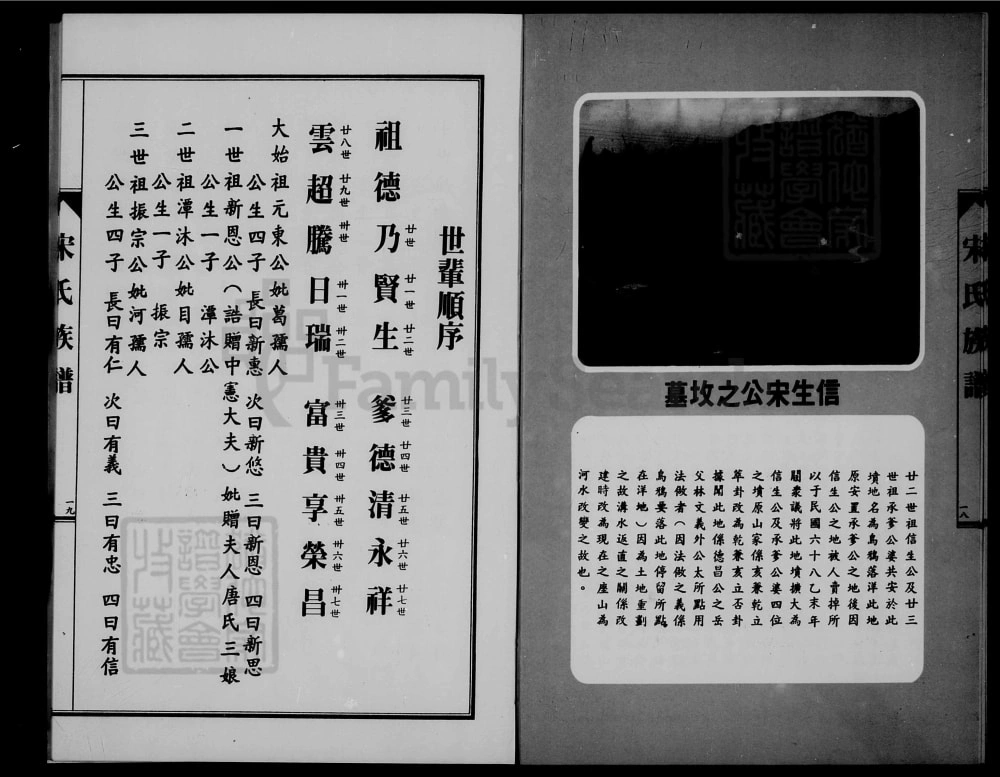 宋氏族譜
一八
信生宋公之坟墓
廿二世祖信生公及廿三
世祖承爹公婆共安於此
墳地名為烏鴉落洋此地
原安置承爹公之地後因
信生公之地被人賣掉所
以于民國六十八乙未年
關衆議將此地墳擴大為
信生公及承爹公婆四位
之墳原山家係亥兼乾立
筭卦改為乾兼亥立否卦
據聞此地係德昌公之岳
父林文義外公太所點用
法做者（因法做之義係
烏鴉要落此地停留所點
在洋地）因為土地重劃
之故溝水返直之關係改
建時改為現在之座山為
河水改變之故也。
世輩順序
祖德乃賢生 爹德清永祥
廿世 廿一世 廿二世 廿三世 廿四世 廿五世 廿六世 廿七世
雲超騰日瑞 富貴享榮昌
廿八世 廿九世 卅世 卅一世 卅二世 卅三世 卅四世 卅五世 卅六世 卅七世
大始祖元東公妣葛孺人
公生四子 長曰新惠 次曰新悠 三曰新恩 四曰新思
一世祖新恩公（誥贈中憲大夫）妣贈夫人唐氏三娘
公生一子 潭沐公
二世祖潭沐公妣目孺人
公生一子 振宗
三世祖振宗公妣河孺人
公生四子 長曰有仁 次曰有義 三曰有忠 四曰有信
宋氏族譜
一九
FamilySearch